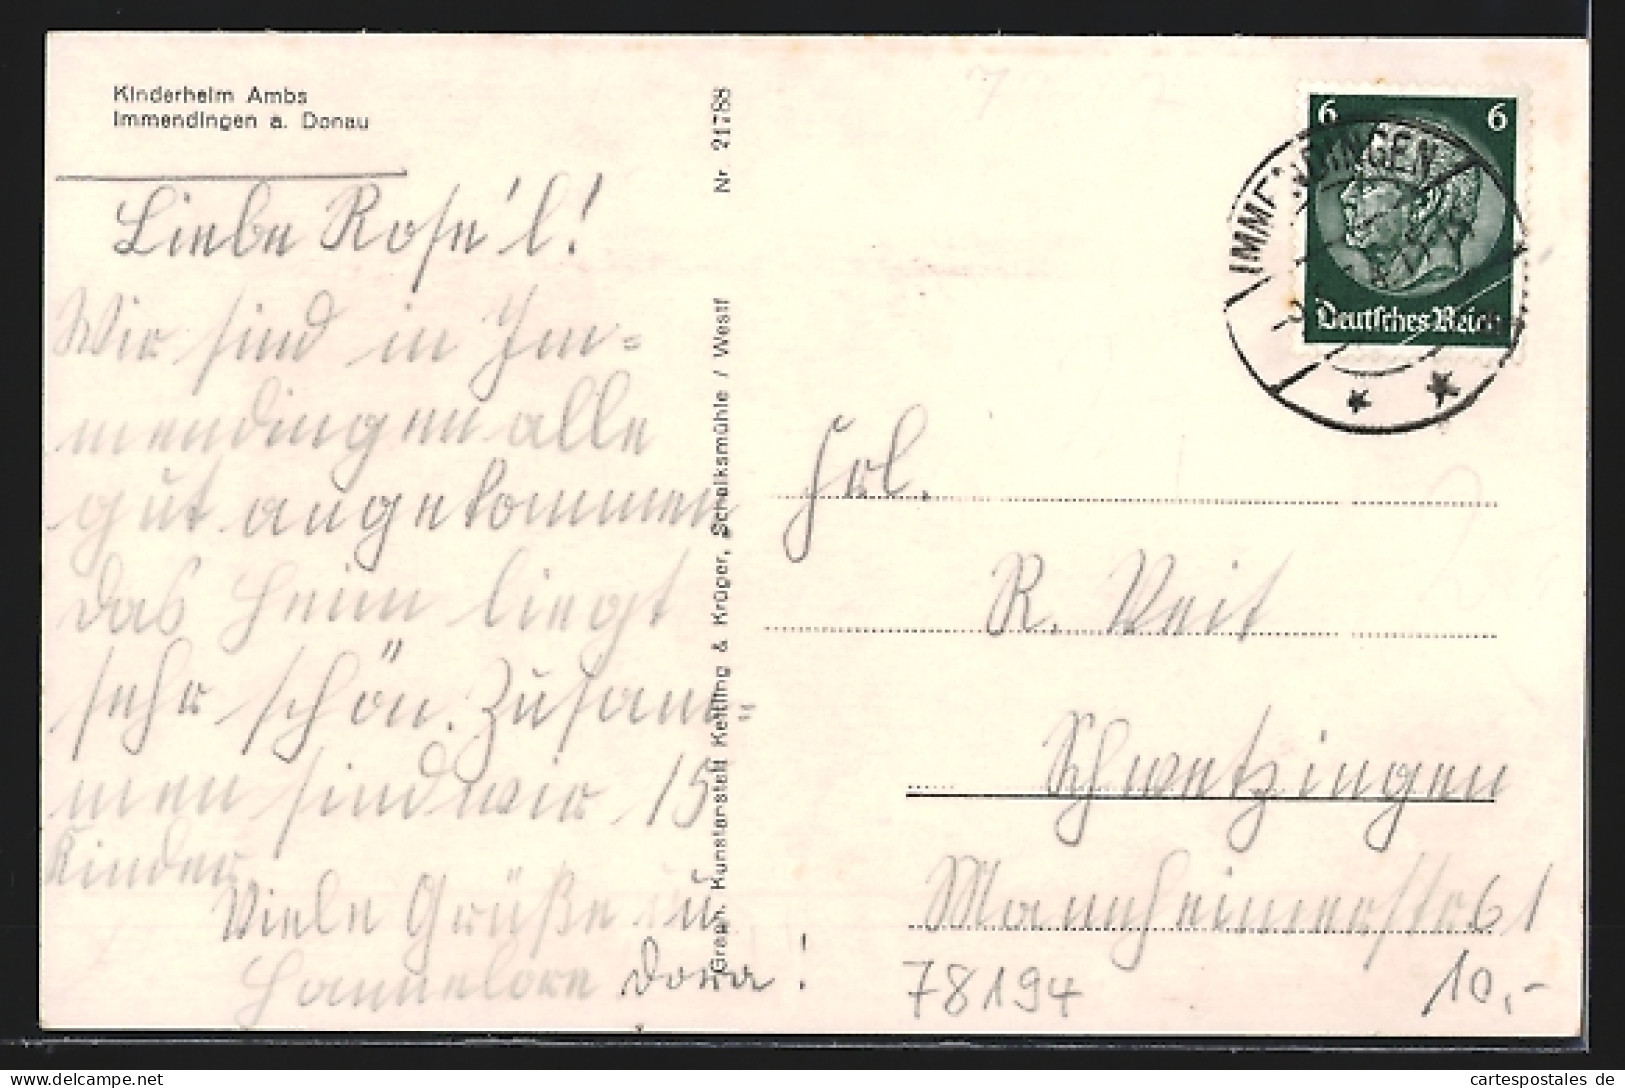 Kinderheim Ambs
Immendingen a. Donau
Liebe Rose'l!
Wir sind in Im=
mendingen alle
gut angekommen
das Heim liegt
sehr schön. Zusam=
men sind wir 15
Kinder
Viele Grüße u.
Hannelore Dora!
Graph. Kunstanstalt Kettling & Krüger, Schalksmühle / Westf Nr. 21788
6 6
Deutsches Reich
IMMENDINGEN
Frl.
R. Veit
Schwetzingen
Mannheimerstr 61
78194
10,-
cartespostales de